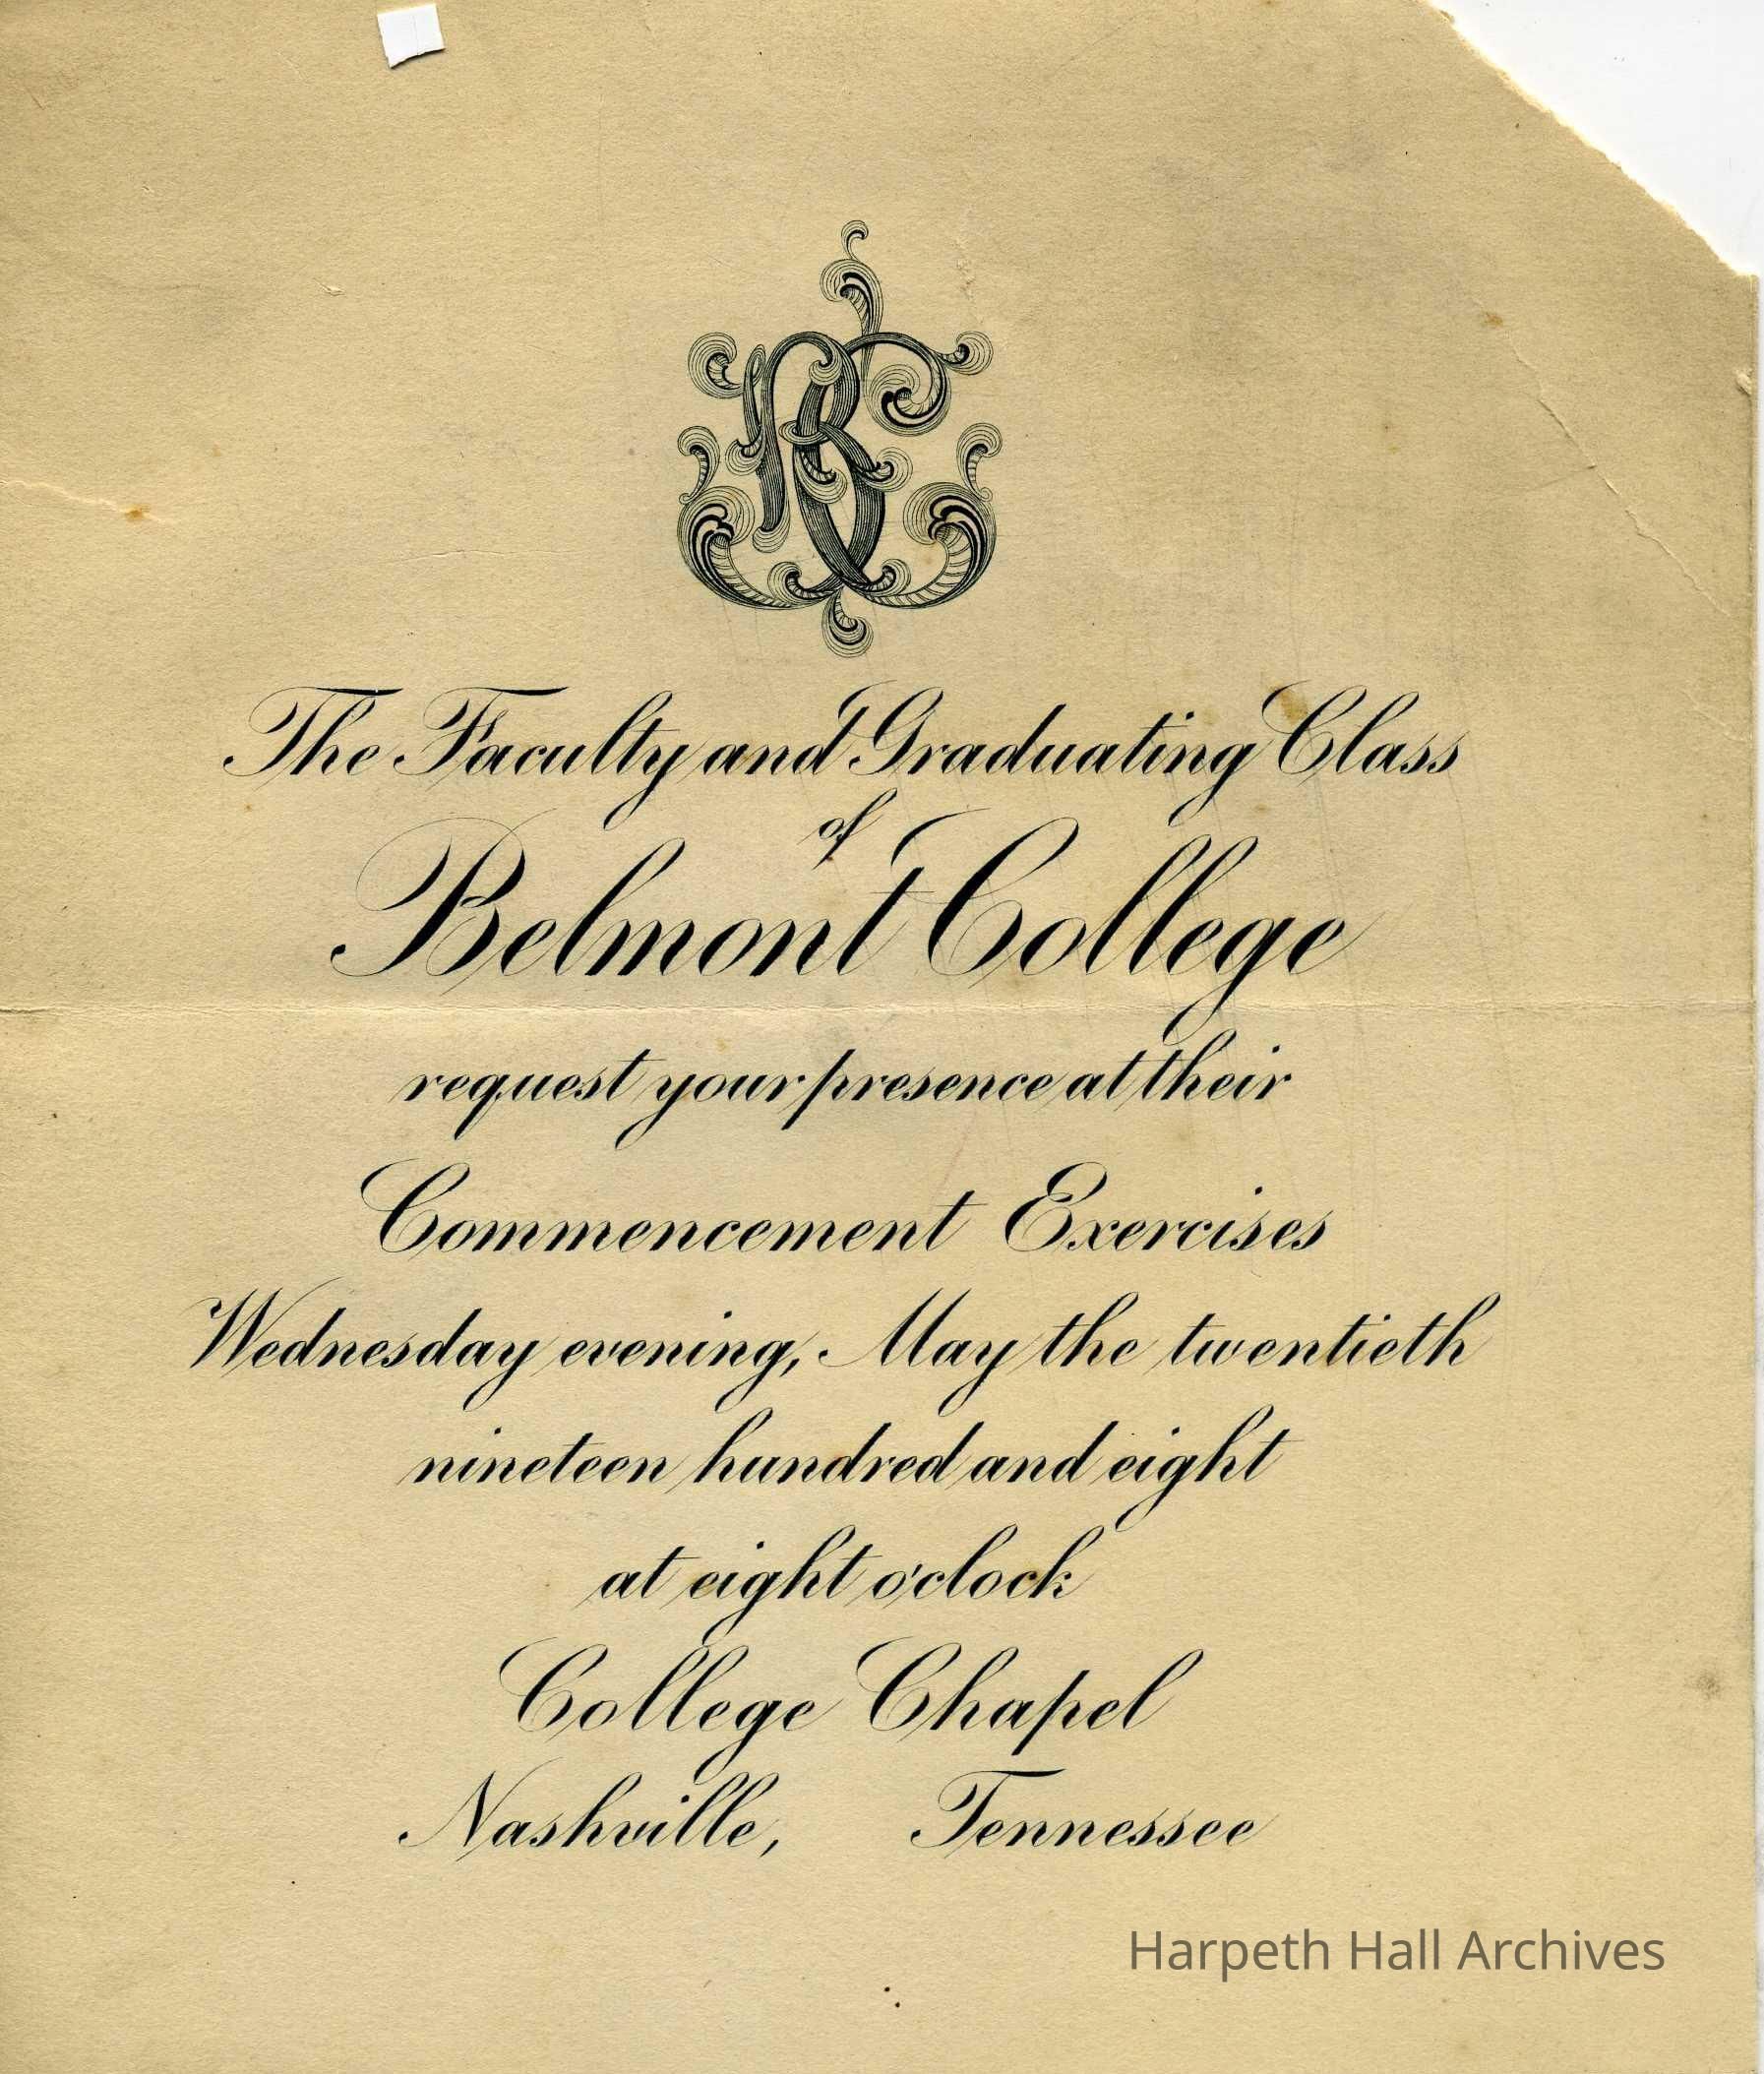 BC
The Faculty and Graduating Class
of
Belmont College
request your presence at their
Commencement Exercises
Wednesday evening, May the twentieth
nineteen hundred and eight
at eight o'clock
College Chapel
Nashville, Tennessee
Harpeth Hall Archives